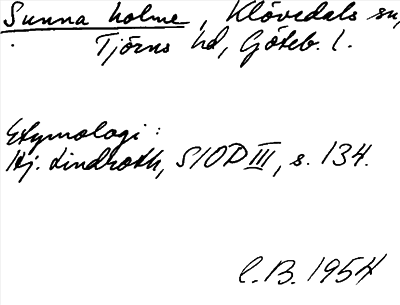 Sunna holme, Klövedals sn,
Tjörns hd, Göteb. l.
Etymologi:
Hj. Lindroth, SIOD III, s. 134.
C.B. 1954